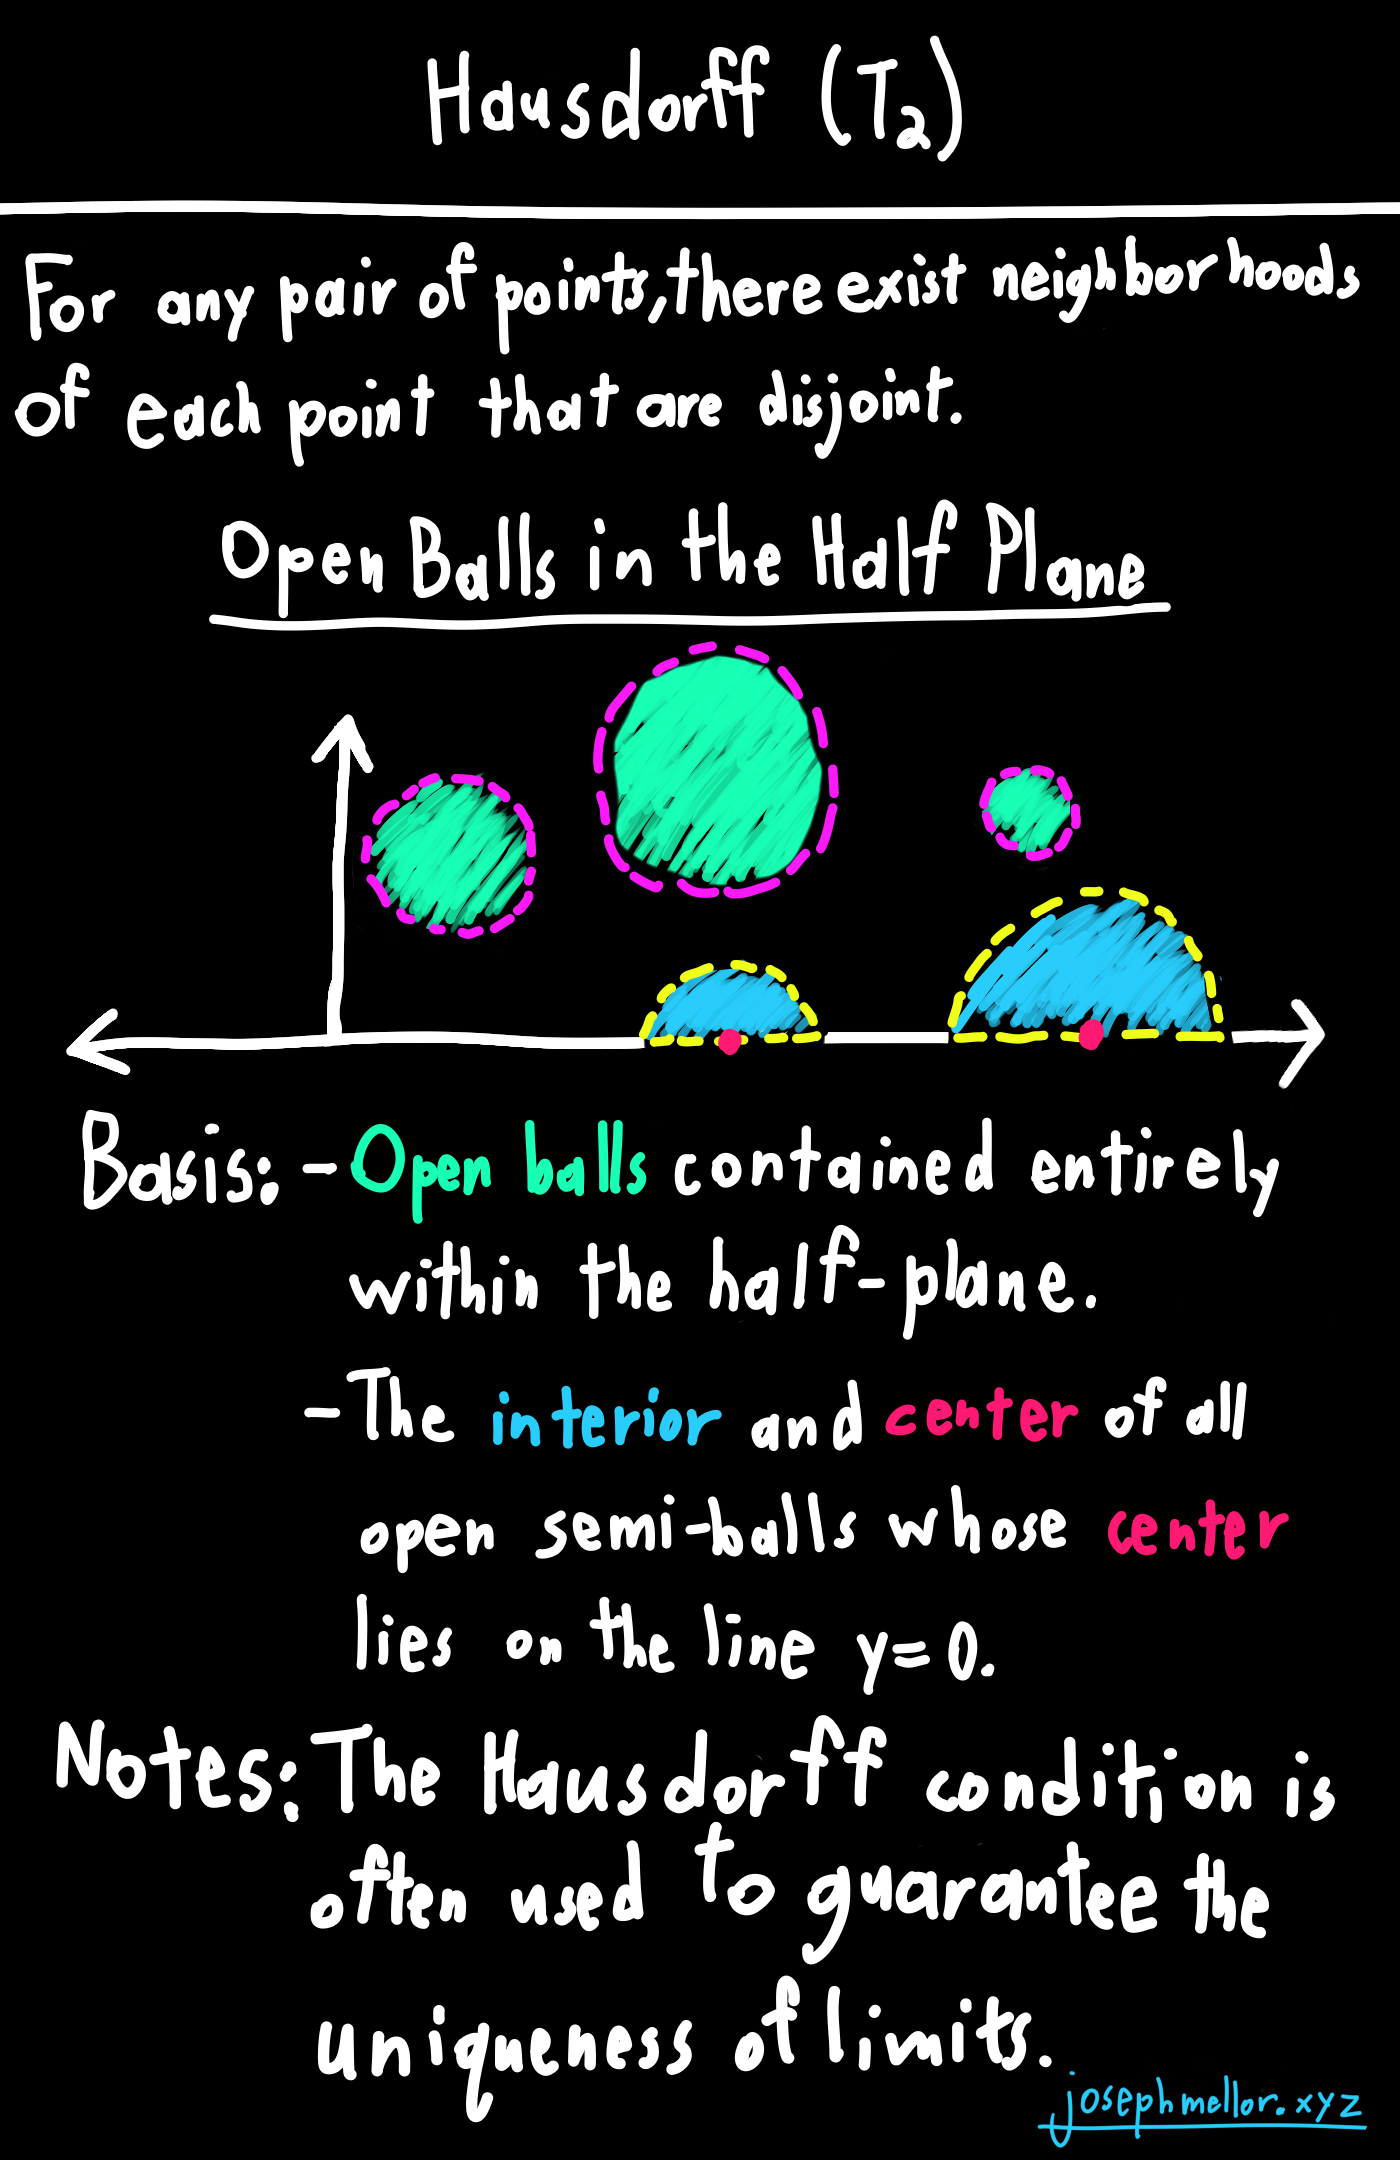 Hausdorff (T₂)
For any pair of points, there exist neighborhoods
of each point that are disjoint.
Open Balls in the Half Plane
Basis: - Open balls contained entirely
within the half-plane.
- The interior and center of all
open semi-balls whose center
lies on the line y=0.
Notes: The Hausdorff condition is
often used to guarantee the
uniqueness of limits.
josephmellor.xyz